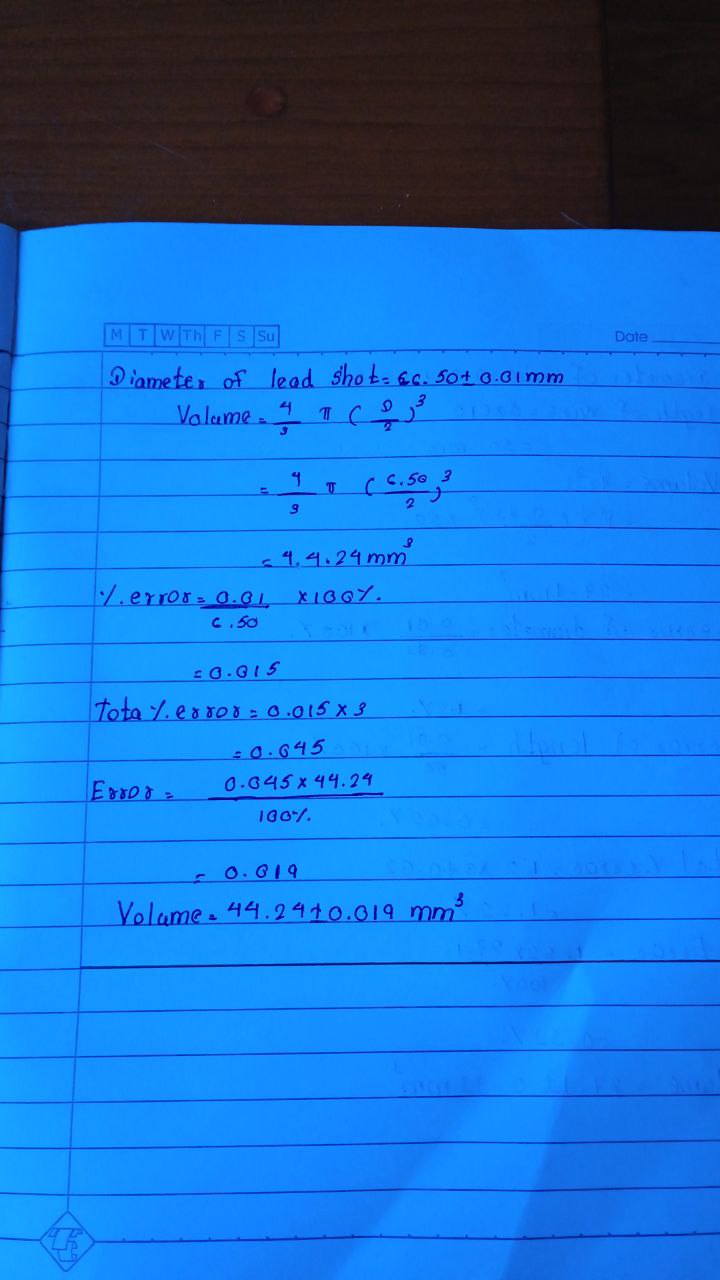 M T W Th F S Su
Date
Diameter of lead shot = 66.50 ± 0.01 mm
Volume = 4/3 π (D/2)³
= 4/3 π (6.50/2)³
= 4.4.24 mm³
%.error = 0.01/6.50 x100%.
= 0.015
Tota %.error = 0.015 x 3
= 0.045
Error = 0.045 x 44.24/100%.
= 0.019
Volume = 44.24 ± 0.019 mm³